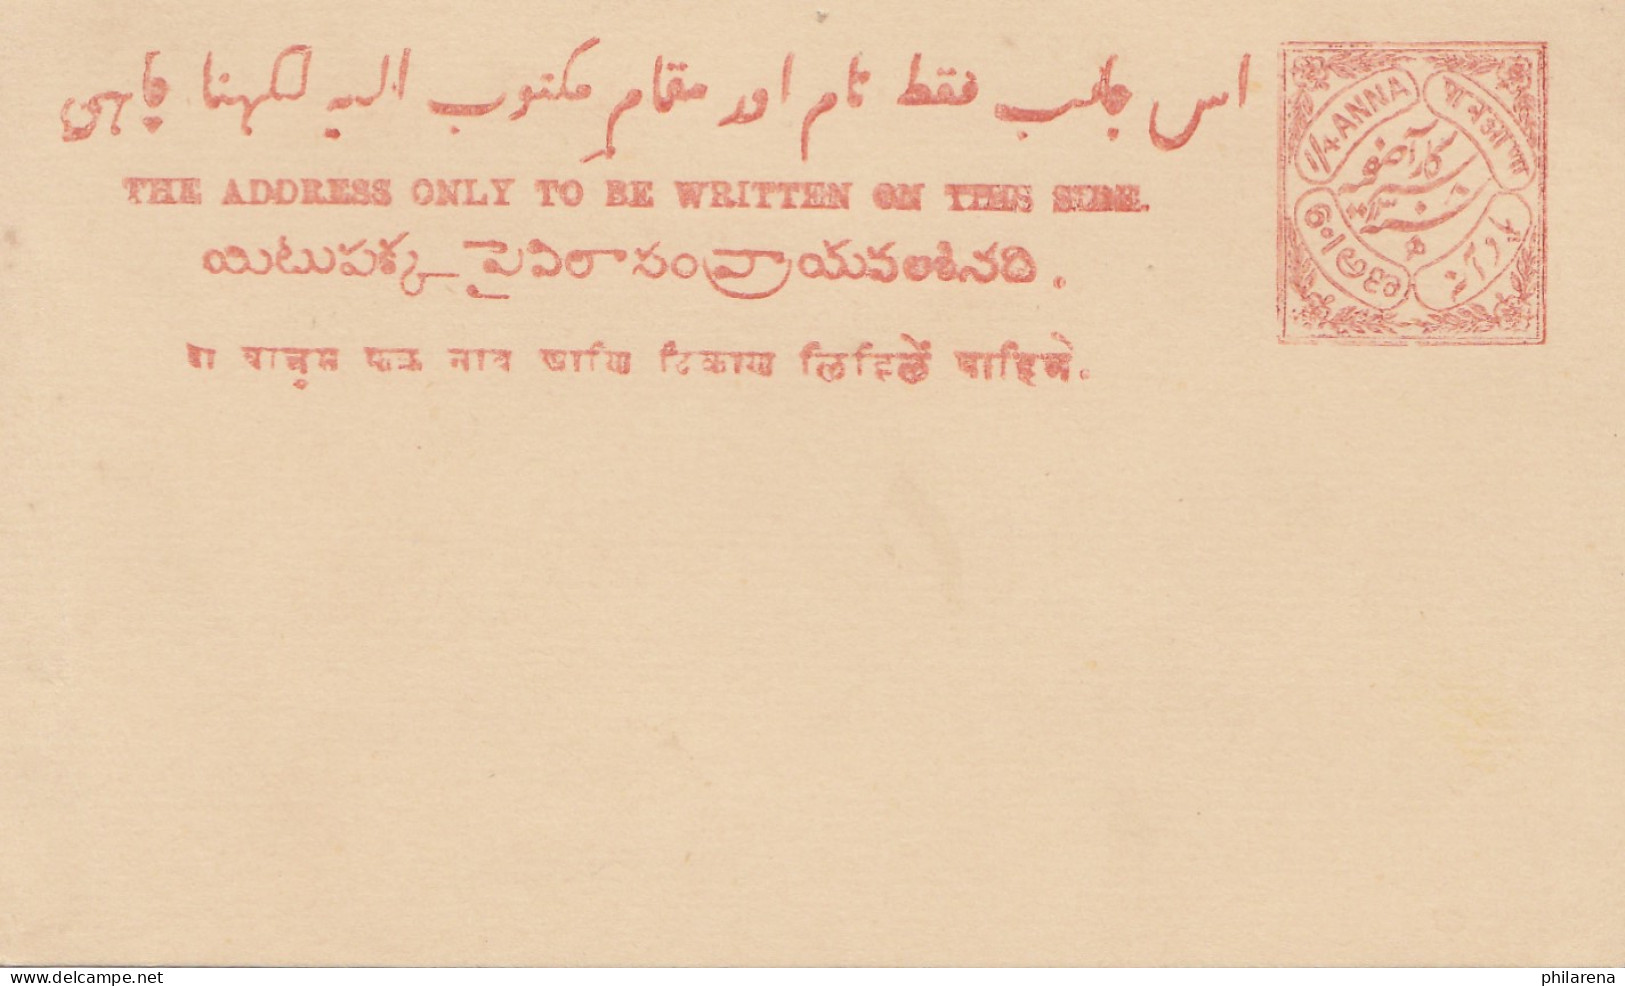 اس جانب فقط نام اور مقام مکتوب الیہ لکهنا چاہی
THE ADDRESS ONLY TO BE WRITTEN ON THIS SIDE.
యిటుపక్క పైవిలాసంవ్రాయవలసినది.
नाव आणि ठिकाण लिहिलें पाहिजे.
1/4 ANNA
पाव आणा
delcampe.net
philarena